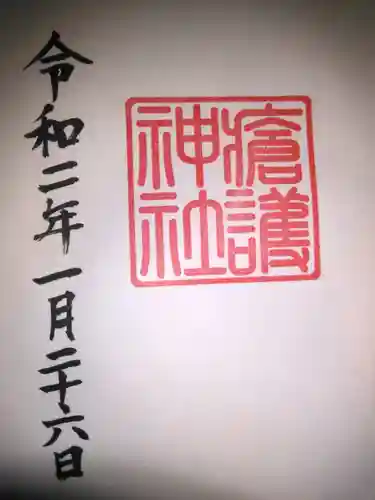 瘡護
神社
令和二年一月二十六日